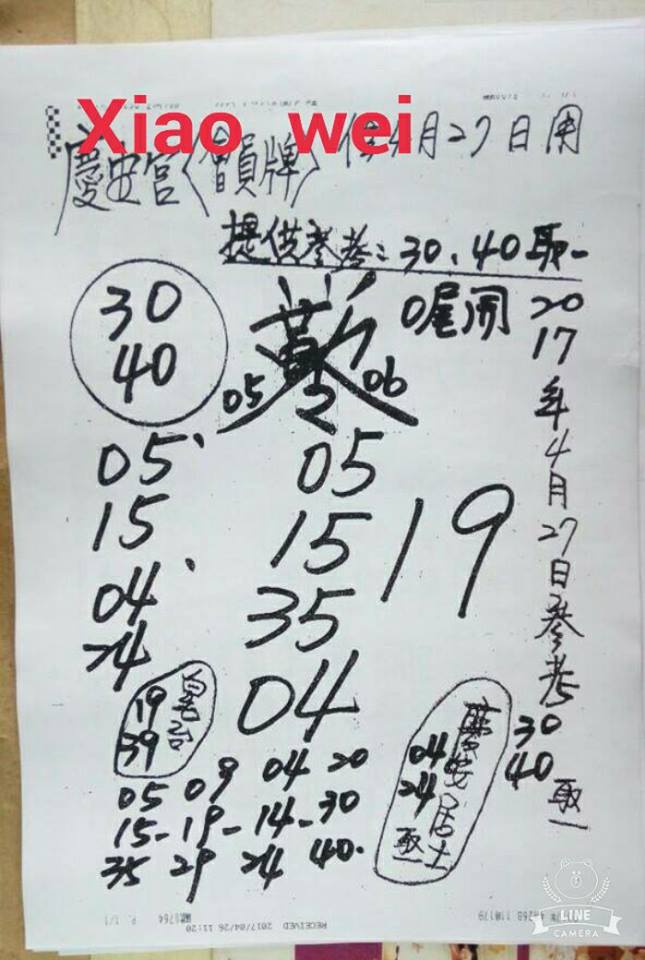 Xiao wei
慶安宮〈會員牌〉 供4月27日用
提供參考：30、40取一
0尾開
30
40
05 06
05
15
04
24
05
15
35
04
19
2017年4月27日參考
30
40
取一
19
39
慶安居士
04
24
取一
05 09 04 20
15-19-14-30
35 29 24 40.
RECEIVED 2017/04/26 11:20
P. 1/1
LINE
CAMERA